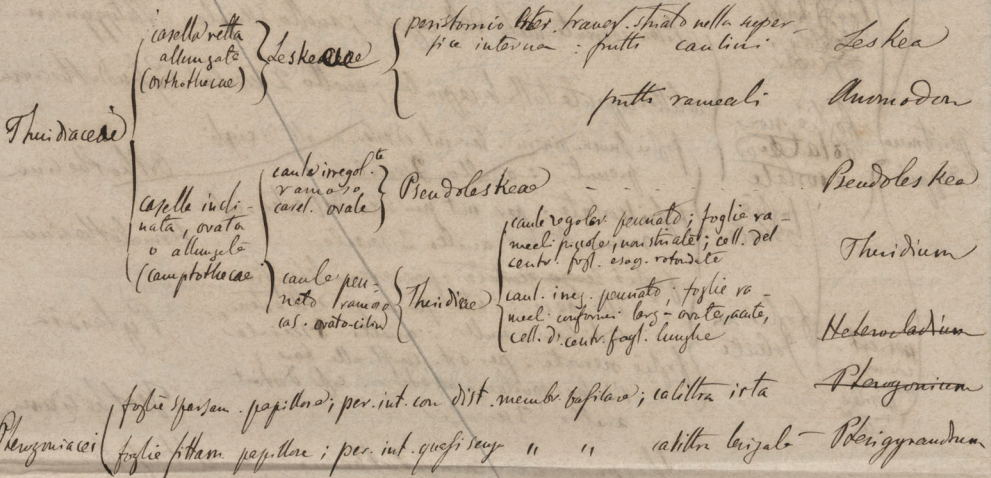 casella retta
allungate
(orthothecae)
Leskeaceae
peristomio inter. traver. striato nella super-
ficie interna : frutti caulini
Leskea
frutti rameali
Anomodon
Thuidiaceae
casella incli-
nata, ovata
o allungate
(camptothecae
caule irregol.te
ramoso
casel. ovale
Pseudoleskeae
Pseudoleskea
caule pen-
nato ramoso
cas. ovato-cilin
Thuidieae
caule regolar. pennato ; foglie ra-
meali piccole, non striate ; cell. del
centr. fogl. esag. rotondate
Thuidium
caul. irreg. pennato ; foglie ra-
meal conformi larg-ovate, acute,
cell. di centr. fogl. lunghe
Heterocladium
Pterogoniacei
foglie sparsam. papillose ; per. int. con dist. membr. basilare ; calittra irta
Pterogonium
foglie fittam papillose ; per. int. quasi senza " " calittra
Pterigynandrum